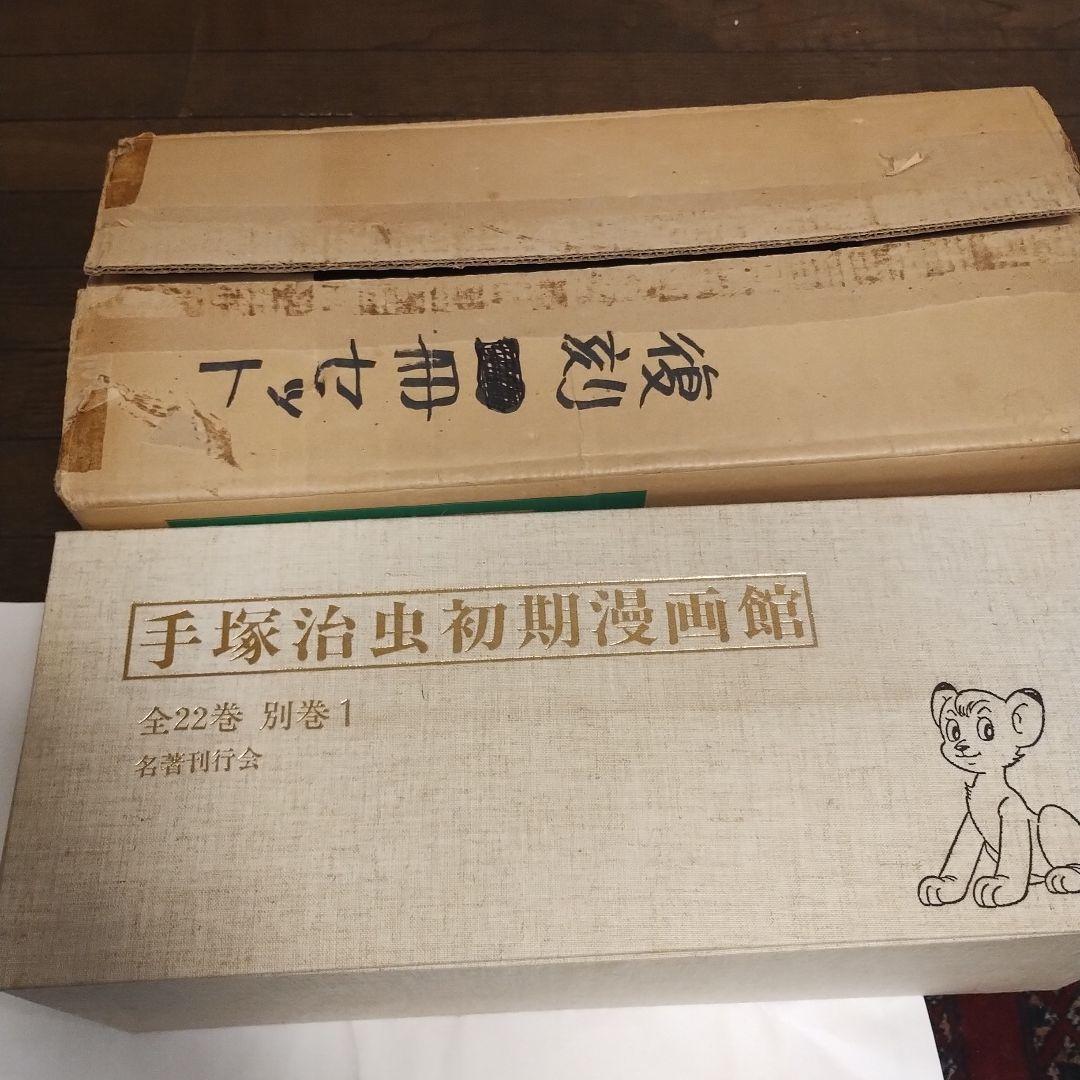 復刻 冊セット
手塚治虫初期漫画館
全22巻 別巻1
名著刊行会